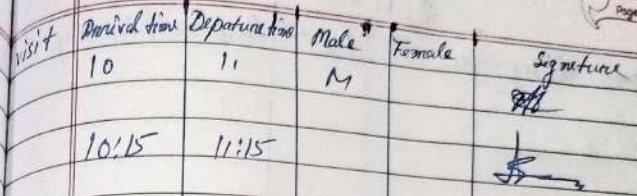 Page
visit Arrival time Depature time Male Female Signeture
10 11 M
10:15 11:15